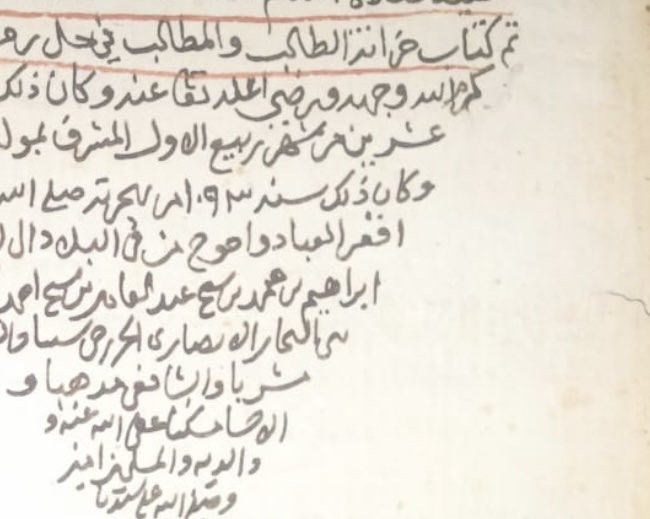 تم كتاب خزانة الطالب والمطالب في حل رمو
كرم الله وجهه ورضي الله تعا عنه وكان ذلك
عشرين من شهر ربيع الاول المشرف بمول
وكان ذلك سنة ١٠٩٣ من لهجرته صلى الله
افقر العباد واحوج من في البلاد ال
ابراهيم بن محمد بن شيخ عبد القادر بن شيخ احمد
النجار الانصاري الخزرجي
مشربا والشافعي مذهبا و
مسكنا عفى الله عنه و
والديه والمسلمين امين
وصلى الله على سيدنا